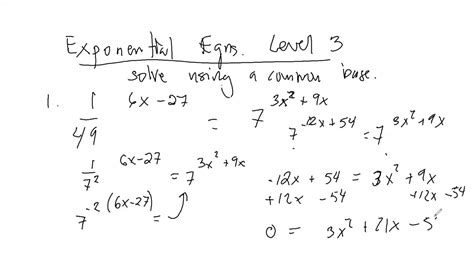 Exponential Eqns. Level 3
solve using a common base.
1. 1/49 ^ 6x-27 = 7^3x²+9x
7^-12x+54 = 7^3x²+9x
1/7² ^ 6x-27 = 7^3x²+9x
-12x + 54 = 3x² + 9x
+12x - 54 +12x - 54
7^-2(6x-27) =
0 = 3x² + 21x - 5